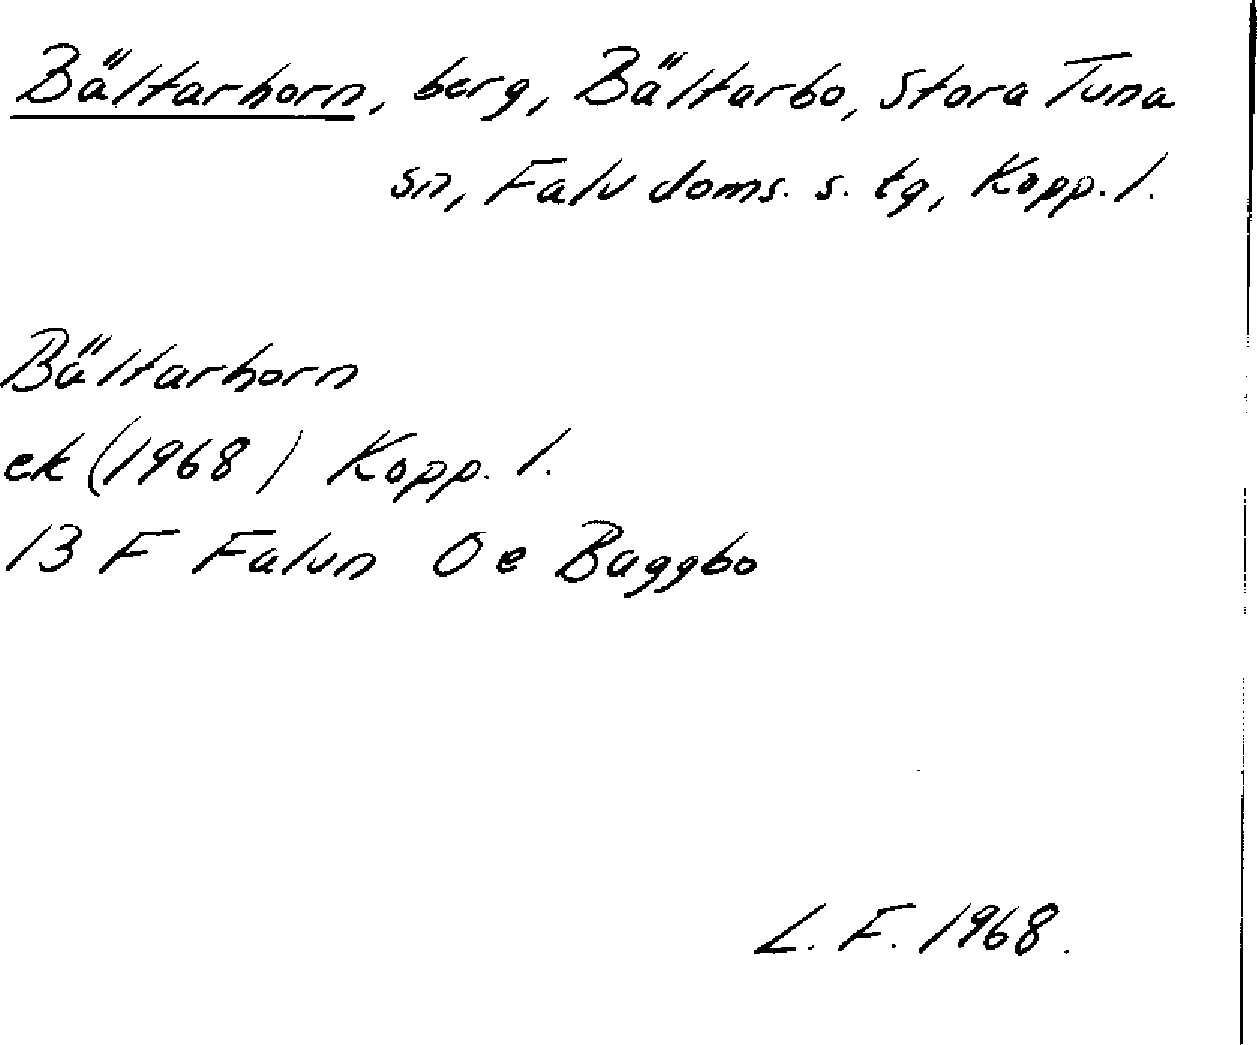 Bältarhorn, berg, Bältarbo, Stora Tuna
sn, Falu doms. s. tg, Kopp. l.
Bältarhorn
ek (1968) Kopp. l.
13 F Falun 0 e Baggbo
L. F. 1968.